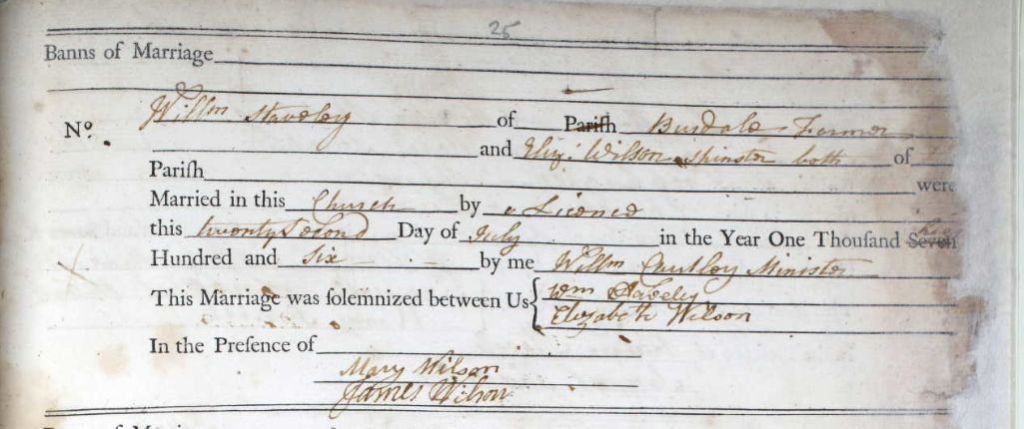 25
Banns of Marriage
No. Willm Staveley of Parish Burdale Farmer
and Eliz: Wilson Spinster both of
Parish were
Married in this Church by a Licence
this twenty Second Day of July in the Year One Thouſand Seven
Hundred and Six by me Willm Chutley Minister
This Marriage was ſolemnized between Us { Wm Staveley
Elizabeth Wilson
In the Preſence of
Mary Wilson
James Wilson